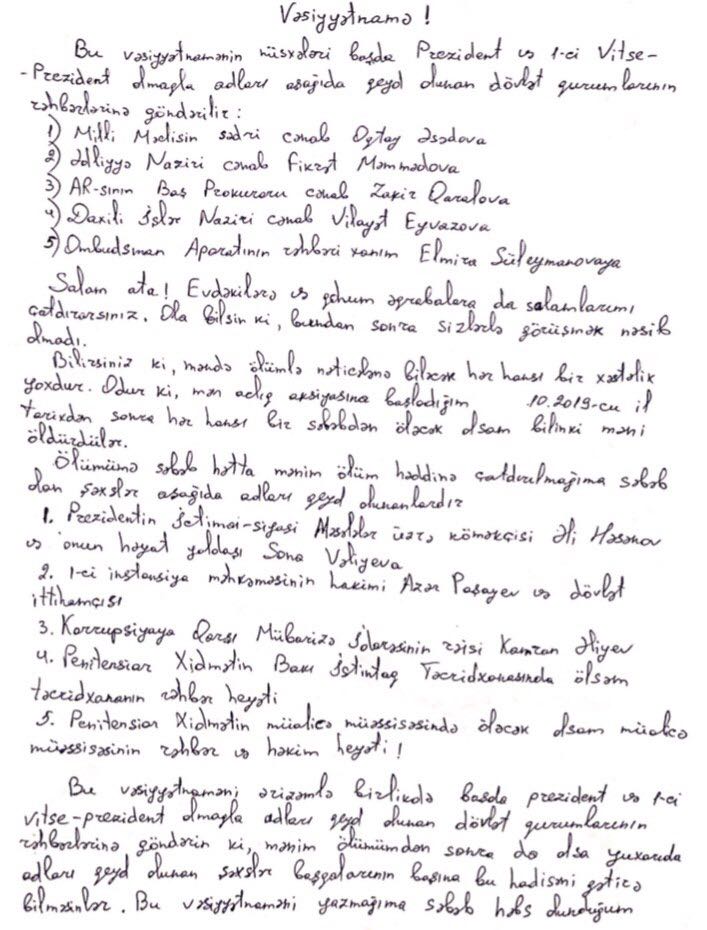 Vəsiyyətnamə !
Bu vəsiyyətnamənin nüsxələri başda Prezident və 1-ci Vitse-
-Prezident olmaqla adları aşağıda qeyd olunan dövlət qurumlarının
rəhbərlərinə göndərilir :
1) Milli Məclisin sədri cənab Oqtay Əsədova
2) Ədliyyə Naziri cənab Fikrət Məmmədova
3) AR-sının Baş Prokuroru cənab Zakir Qaralova
4) Daxili İşlər Naziri cənab Vilayət Eyvazova
5) Ombudsman Aparatının rəhbəri xanım Elmira Süleymanovaya
Salam ata ! Evdəkilərə və qohum əqrəbalara da salamlarımı
çatdırarsınız. Ola bilsin ki, bundan sonra sizlərlə görüşmək nəsib
olmadı.
Bilirsiniz ki, məndə ölümlə nəticələnə biləcək hər hansı bir xəstəlik
yoxdur. Odur ki, mən aclıq aksiyasına başladığım 10.2019-cu il
tarixdən sonra hər hansı bir səbəbdən öləcək olsam bilinki məni
öldürdülər.
Ölümümə səbəb hətta mənim ölüm həddinə çatdırılmağıma səbəb
olan şəxslər aşağıda adları qeyd olunanlardır
1. Prezidentin İctimai-siyasi Məsələlər üzrə köməkçisi Əli Həsənov
və onun həyat yoldaşı Sona Vəliyeva
2. 1-ci instansiya məhkəməsinin hakimi Azər Paşayev və dövlət
ittihamçısı
3. Korrupsiyaya Qarşı Mübarizə İdarəsinin rəisi Kamran Əliyev
4. Penitensiar Xidmətin Bakı İstintaq Təcridxanasında ölsəm
təcridxananın rəhbər heyəti
5. Penitensiar Xidmətin müalicə müəssisəsində öləcək olsam müalicə
müəssisəsinin rəhbər və həkim heyəti !
Bu vəsiyyətnaməni ərizəmlə birlikdə başda prezident və 1-ci
vitse-prezident olmaqla adları qeyd olunan dövlət qurumlarının
rəhbərlərinə göndərin ki, mənim ölümümdən sonra da olsa yuxarıda
adları qeyd olunan şəxslər başqalarının başına bu hadisəni gətirə
bilməsinlər. Bu vəsiyyətnaməni yazmağıma səbəb həbs olunduğum